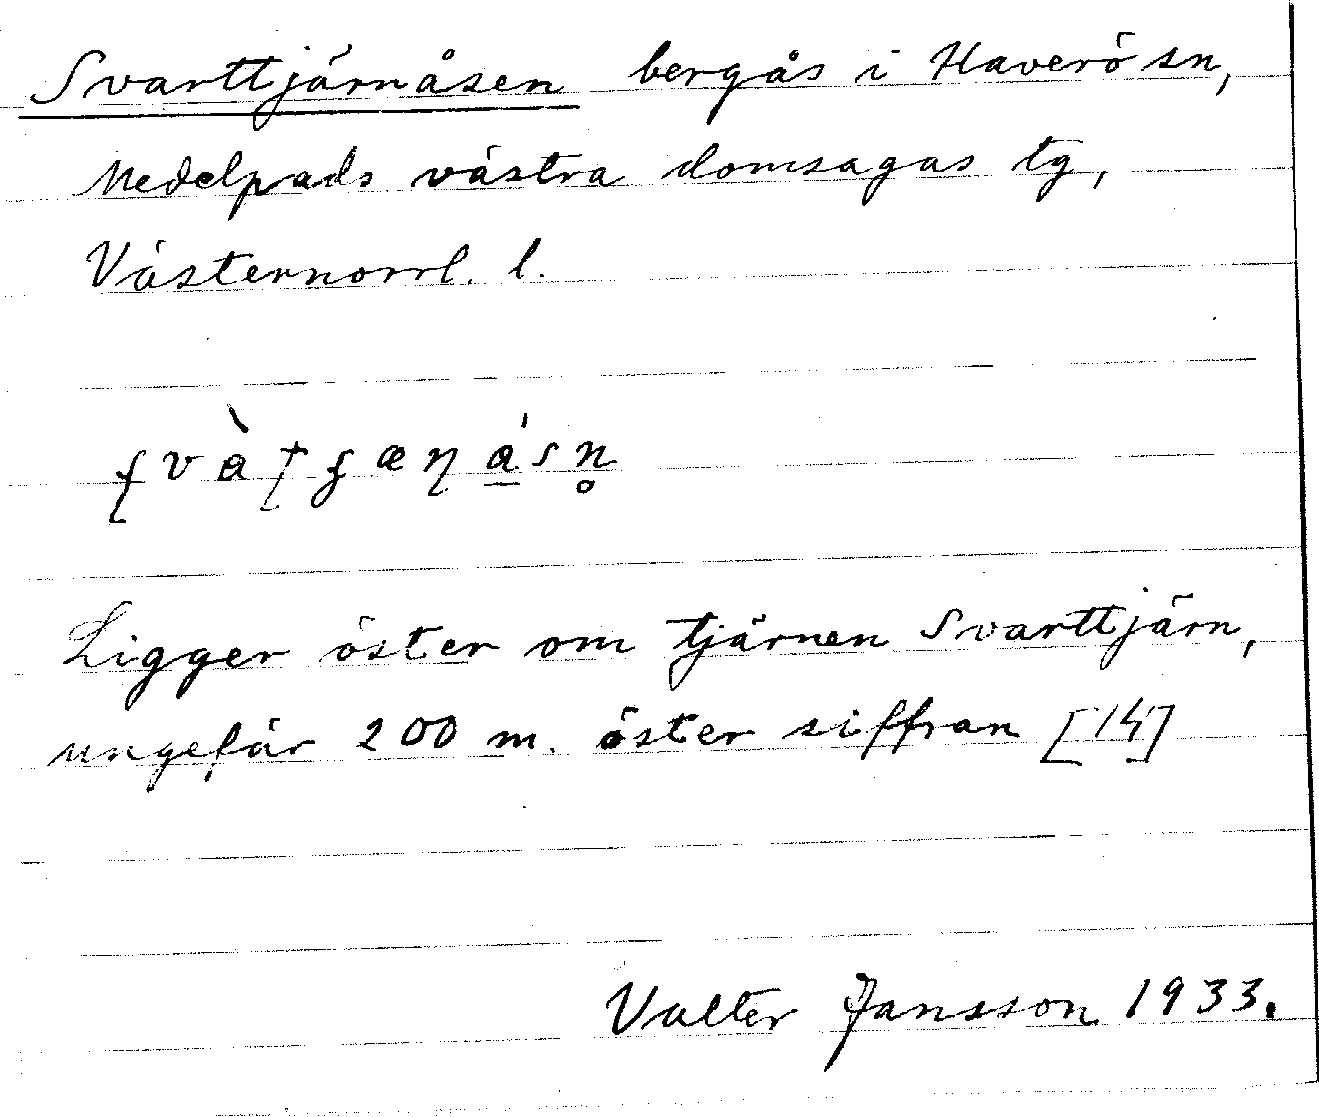 Svarttjärnåsen bergås i Haverö sn,
Medelpads västra domsagas tg,
Västernorrl. l.
Ligger öster om tjärnen Svarttjärn,
ungefär 200 m. öster siffran [14]
Valter Jansson 1933.